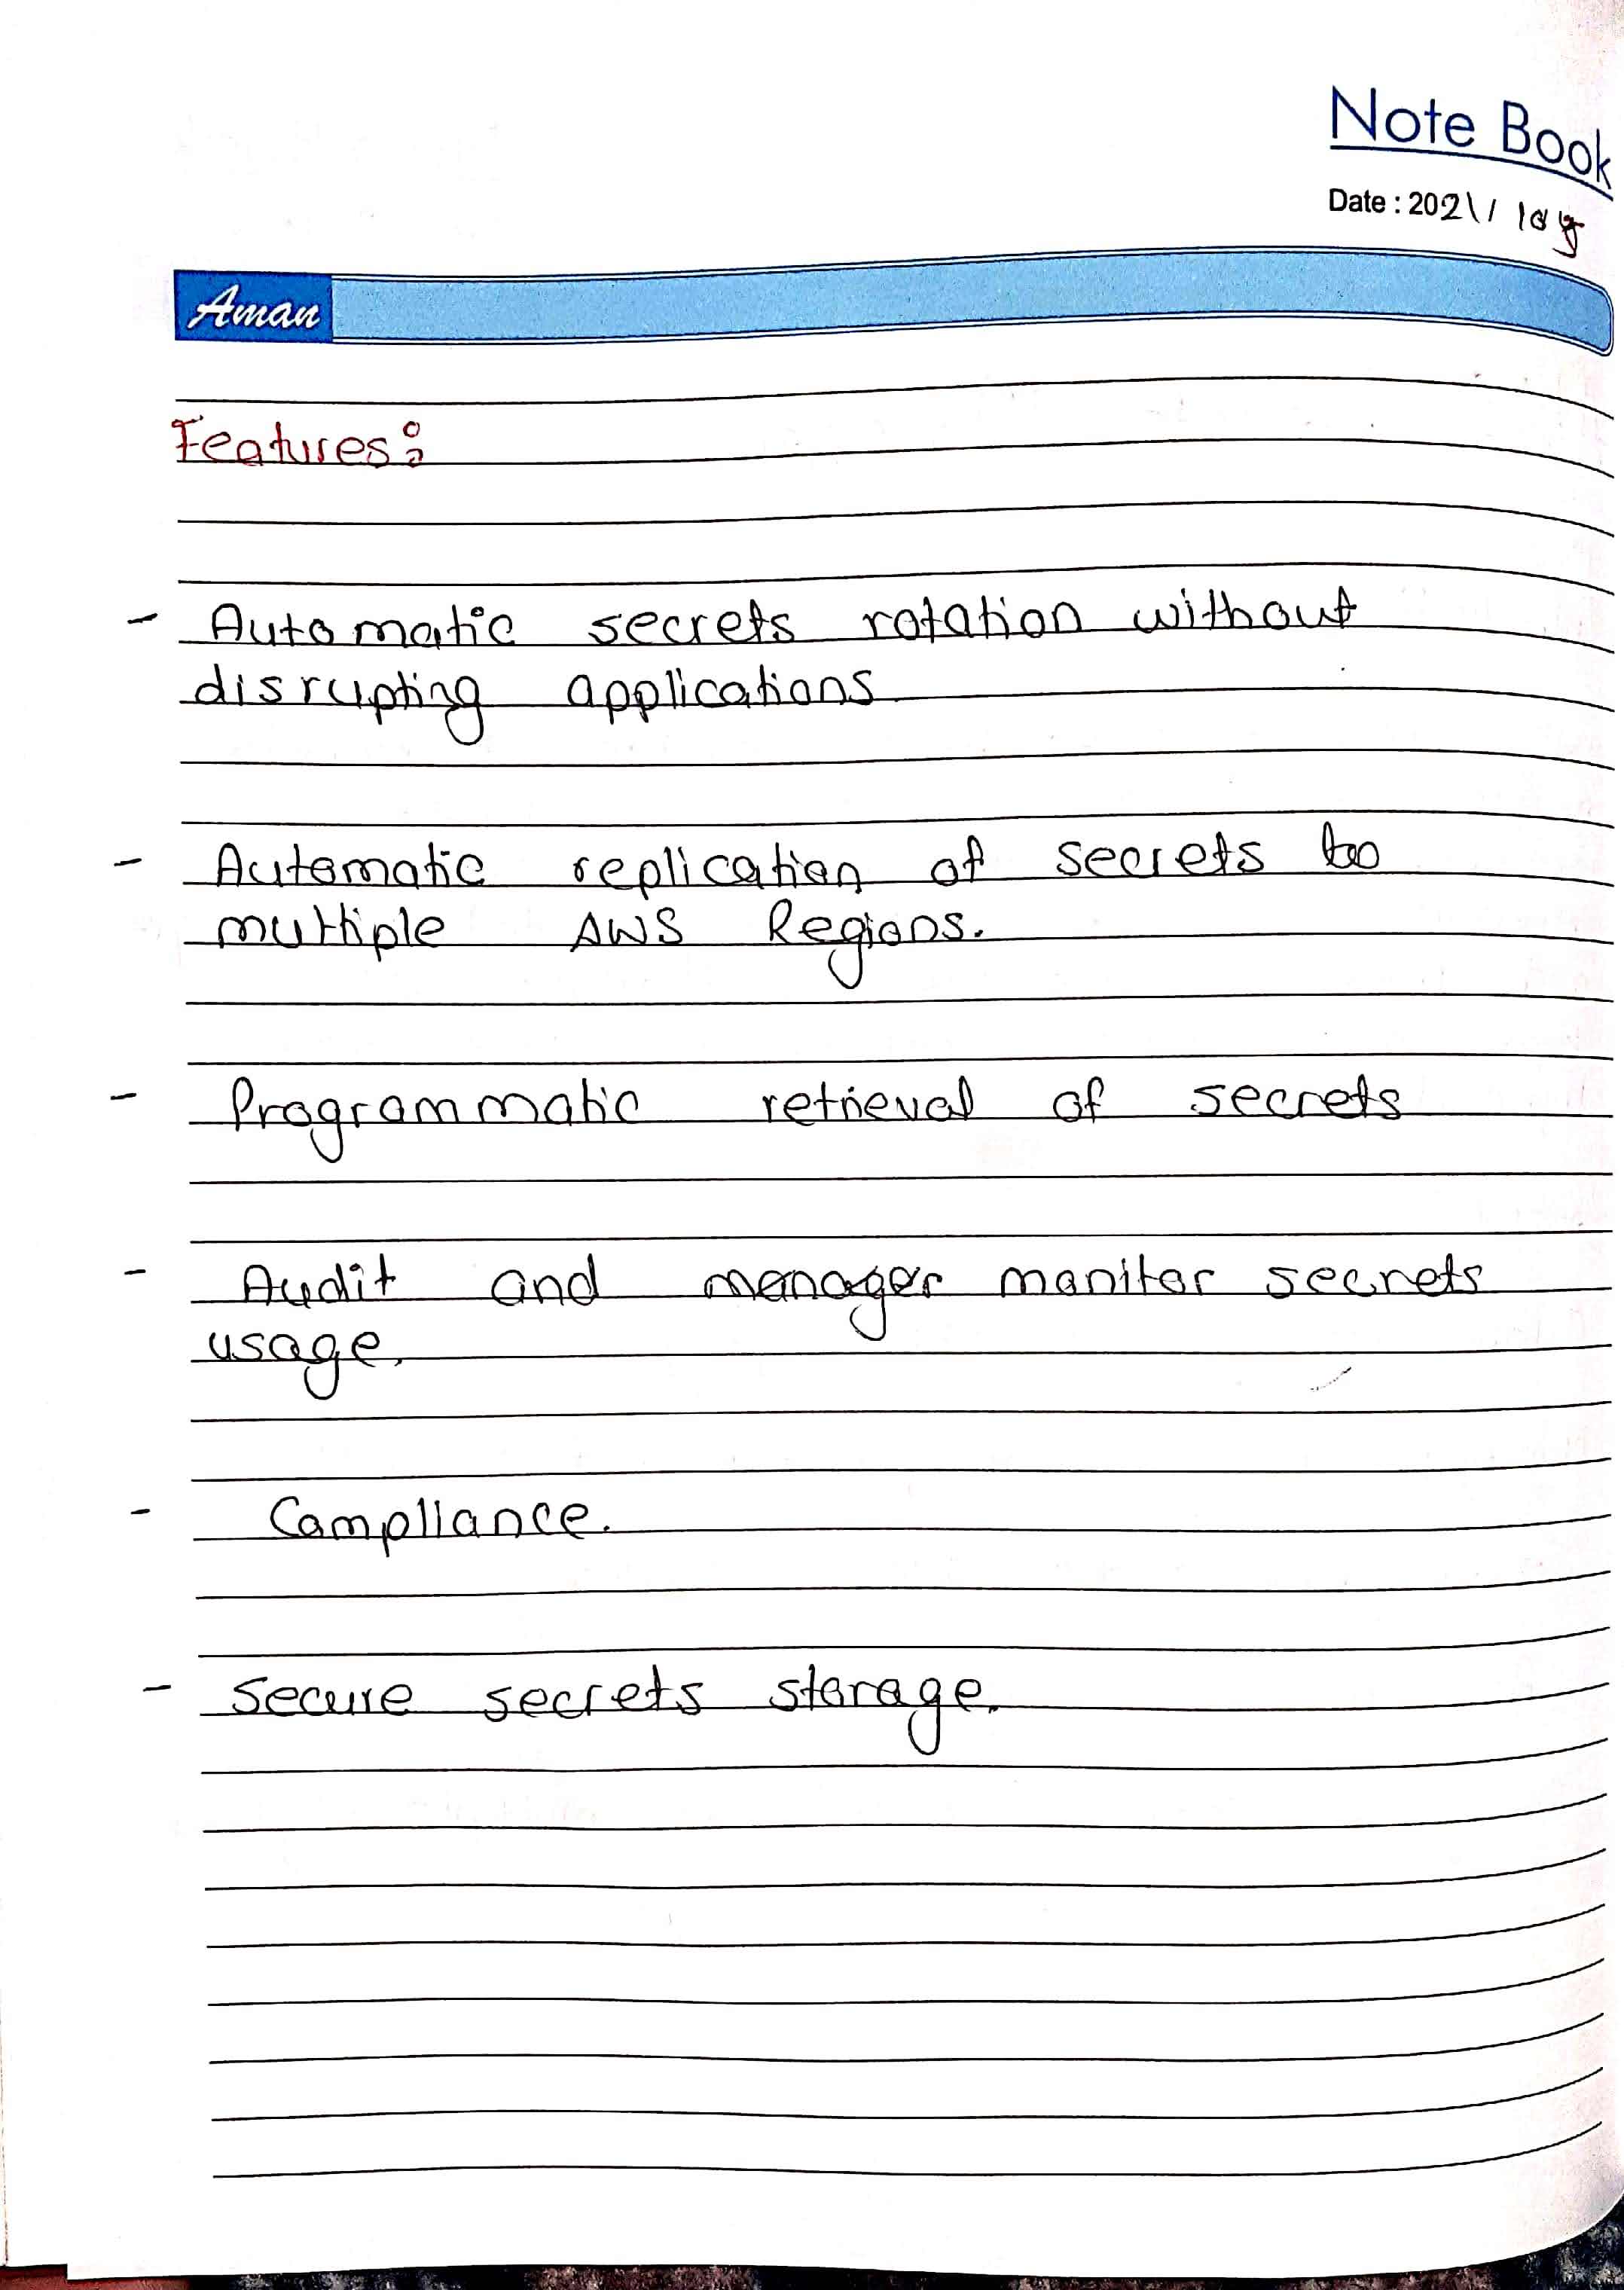 Note Book
Date : 2021/
Aman
Features:
- Automatic secrets rotation without
disrupting applications
- Automatic replication of secrets too
multiple AWS Regions.
- Programmatic retrieval of secrets
- Audit and manager monitor secrets
usage.
- Compliance.
- Secure secrets storage.